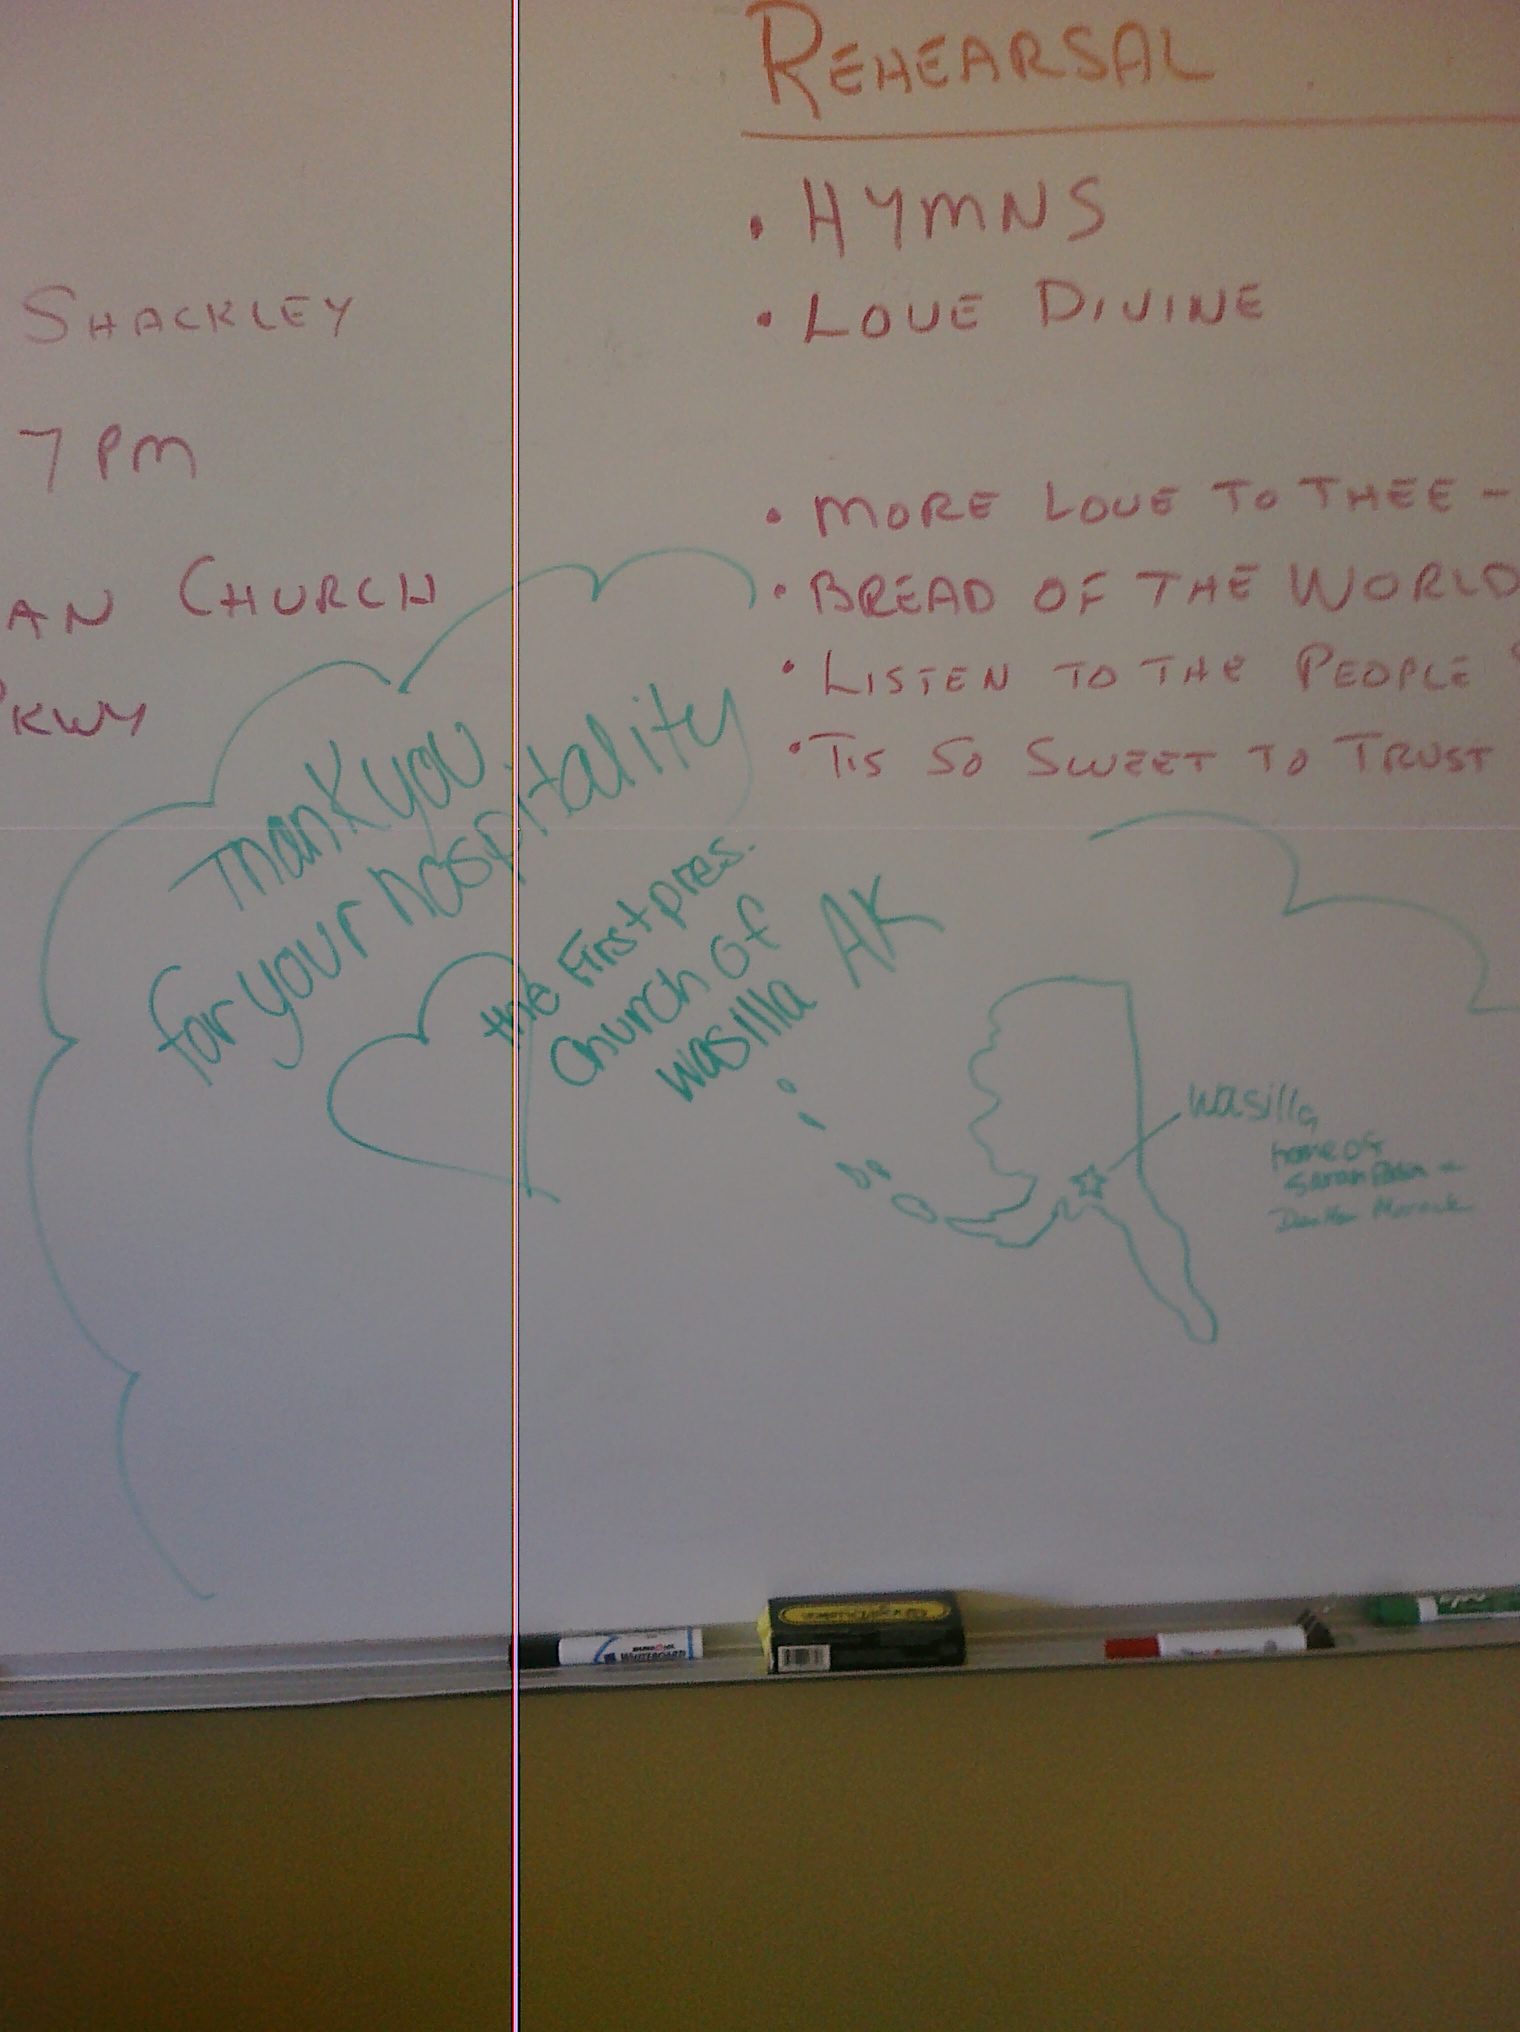 REHEARSAL
• HYMNS
• LOVE DIVINE
• MORE LOVE TO THEE -
• BREAD OF THE WORLD
• LISTEN TO THE PEOPLE
• TIS SO SWEET TO TRUST
SHACKLEY
7 PM
AN CHURCH
PKWY
Thank you
for your hospitality
the First pres.
Church of
wasilla AK
wasilla,
home of
Sarah Palin
WHITEBOARD